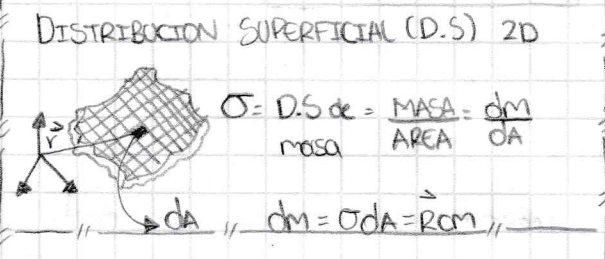 DISTRIBUCION SUPERFICIAL (D.S) 2D
σ = D.S de masa = MASA/AREA = dm/dA
r⃗
dA // dm = σdA = R⃗cm //